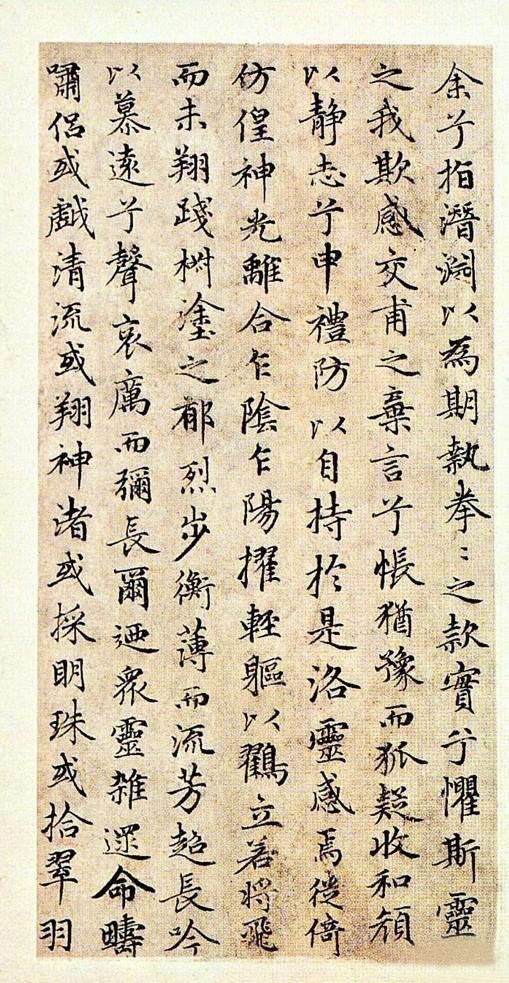 余兮指潛淵以為期執拳〻之款實兮懼斯靈
之我欺感交甫之棄言兮悵猶豫而狐疑收和顏
以靜志兮申禮防以自持於是洛靈感焉徙倚
仿偟神光離合乍陰乍陽擢輕軀以鶴立若將飛
而未翔踐椒塗之郁烈步衡薄而流芳超長吟
以慕遠兮聲哀厲而彌長爾迺衆靈雜遝命疇
嘯侶或戲清流或翔神渚或採明珠或拾翠羽